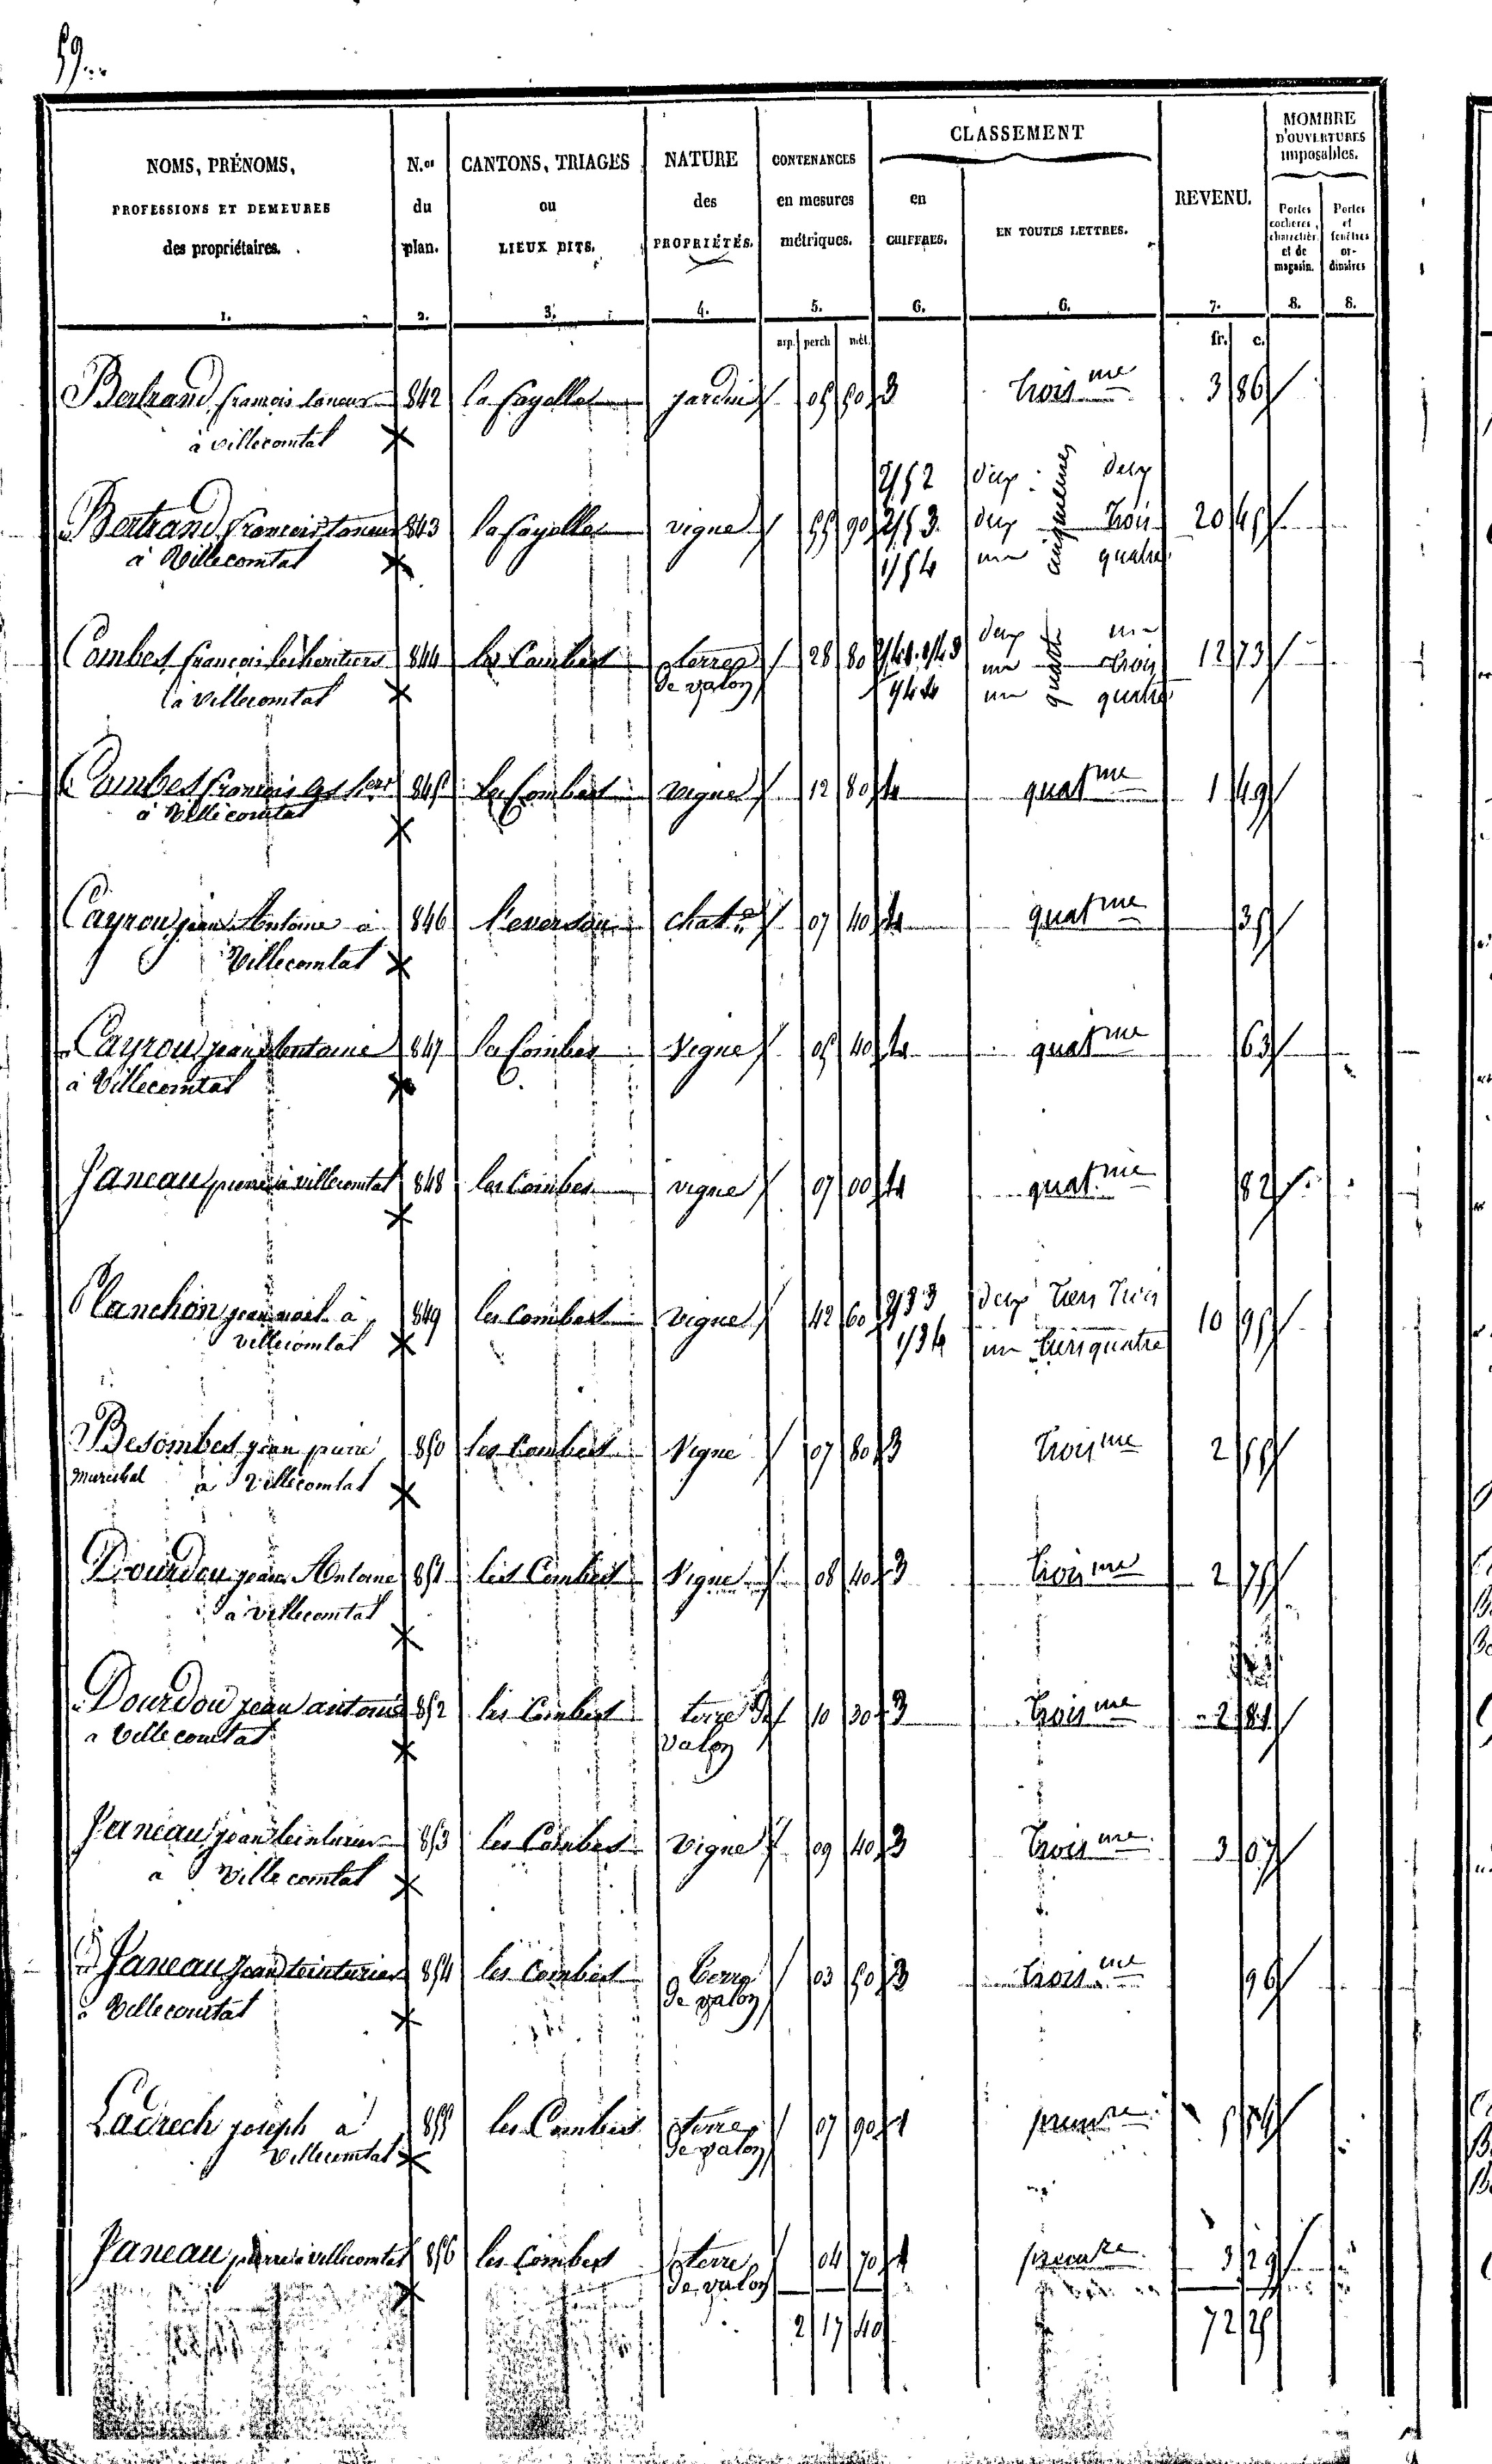 59
NOMS, PRÉNOMS, PROFESSIONS ET DEMEURES des propriétaires. N.os du plan. CANTONS, TRIAGES ou LIEUX DITS. NATURE des PROPRIÉTÉS. CONTENANCES en mesures métriques. CLASSEMENT en CHIFFRES. EN TOUTES LETTRES. REVENU. NOMBRE D'OUVERTURES imposables. Portes cochères, charretièr. et de magasin. Portes et fenêtres ordinaires
1. 2. 3. 4. 5. 6. 6. 7. 8. 8.
arp. perch mèt. fr. c.
Bertrand francois taneur 842 la fagette jardin 05 50 3 trois me 3 86
à villecomtal
2/5 2 deux deux
Bertrand francois taneur 843 la fagette vigne 55 90 2/5 3 deux cinquièmes trois 20 45
à Villecomtal 1/5 4 un quatre
Combes francois les heritiers 844 les Combes terre 28 80 2/4 1. 1/4 3 deux un un quarts trois 12 73
à Villecomtal de valon 1/4 4 un quatre
Combes francois les her 845 les Combes vigne 12 80 4 quat me 1 49
à Villecomtal
Cayrou jean Antoine à 846 chat 07 40 4 quat me 35
Villecomtal
Cayrou jean Antoine 847 les Combes Vigne 05 40 4 quat me 63
à Villecomtal
Janeau pierre à villecomtal 848 les Combes vigne 07 00 4 quat me 82
Planchon jean à 849 les Combes vigne 42 60 2/3 3 deux tiers trois 10 95
villecomtal 1/3 4 un tiers quatre
Besombes jean pierre 850 les Combes Vigne 07 80 3 trois me 2 55
marechal à Villecomtal
Dourdou jean Antoine 851 les Combes Vigne 08 40 3 trois me 2 75
à villecomtal
Dourdou jean antoine 852 les Combes terre de 10 30 3 trois me 2 81
a Villecomtal valon
Janeau jean teinturier 853 les Combes Vigne 09 40 3 trois me 3 07
a Ville comtal
Janeau jean teinturier 854 les Combes terre 03 50 3 trois me 96
à Villecomtal de valon
Ladrech joseph à 855 les Combes terre 07 90 1 prem re 5 54
Villecomtal de valon
Janeau pierre à villecomtal 856 les Combes terre 04 70 1 prem re 3 29
de valon
2 17 40 72 25